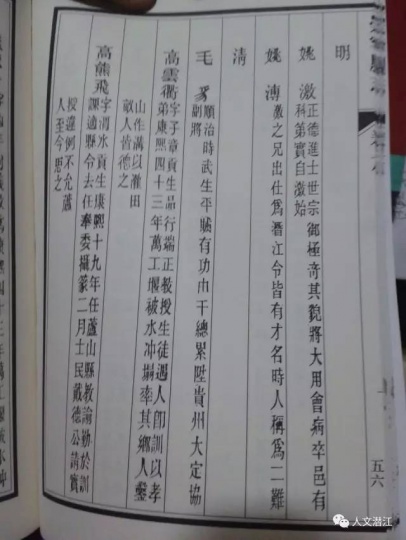 明
姚激 正德進士世宗御極奇其貌將大用會病卒邑有
科第實自激始
姚溥 激之兄出仕爲潛江令皆有才名時人稱爲二難
清
毛 順治時武生平賊有功由千總累陞貴州大定協
副將
高雲衢 字子章貢生品行端正教授生徒遇人卽訓以孝
弟康熙四十三年萬工堰被水冲塌率其鄉人鑿
山作溝以灌田
鄉人皆德之
高熊飛 字渭水貢生康熙十九年任蘆山縣教諭勤於訓
課適縣令去任奉委攝篆二月士民戴德公請實
授違例不允蘆
人至今思之
五六
人文潜江